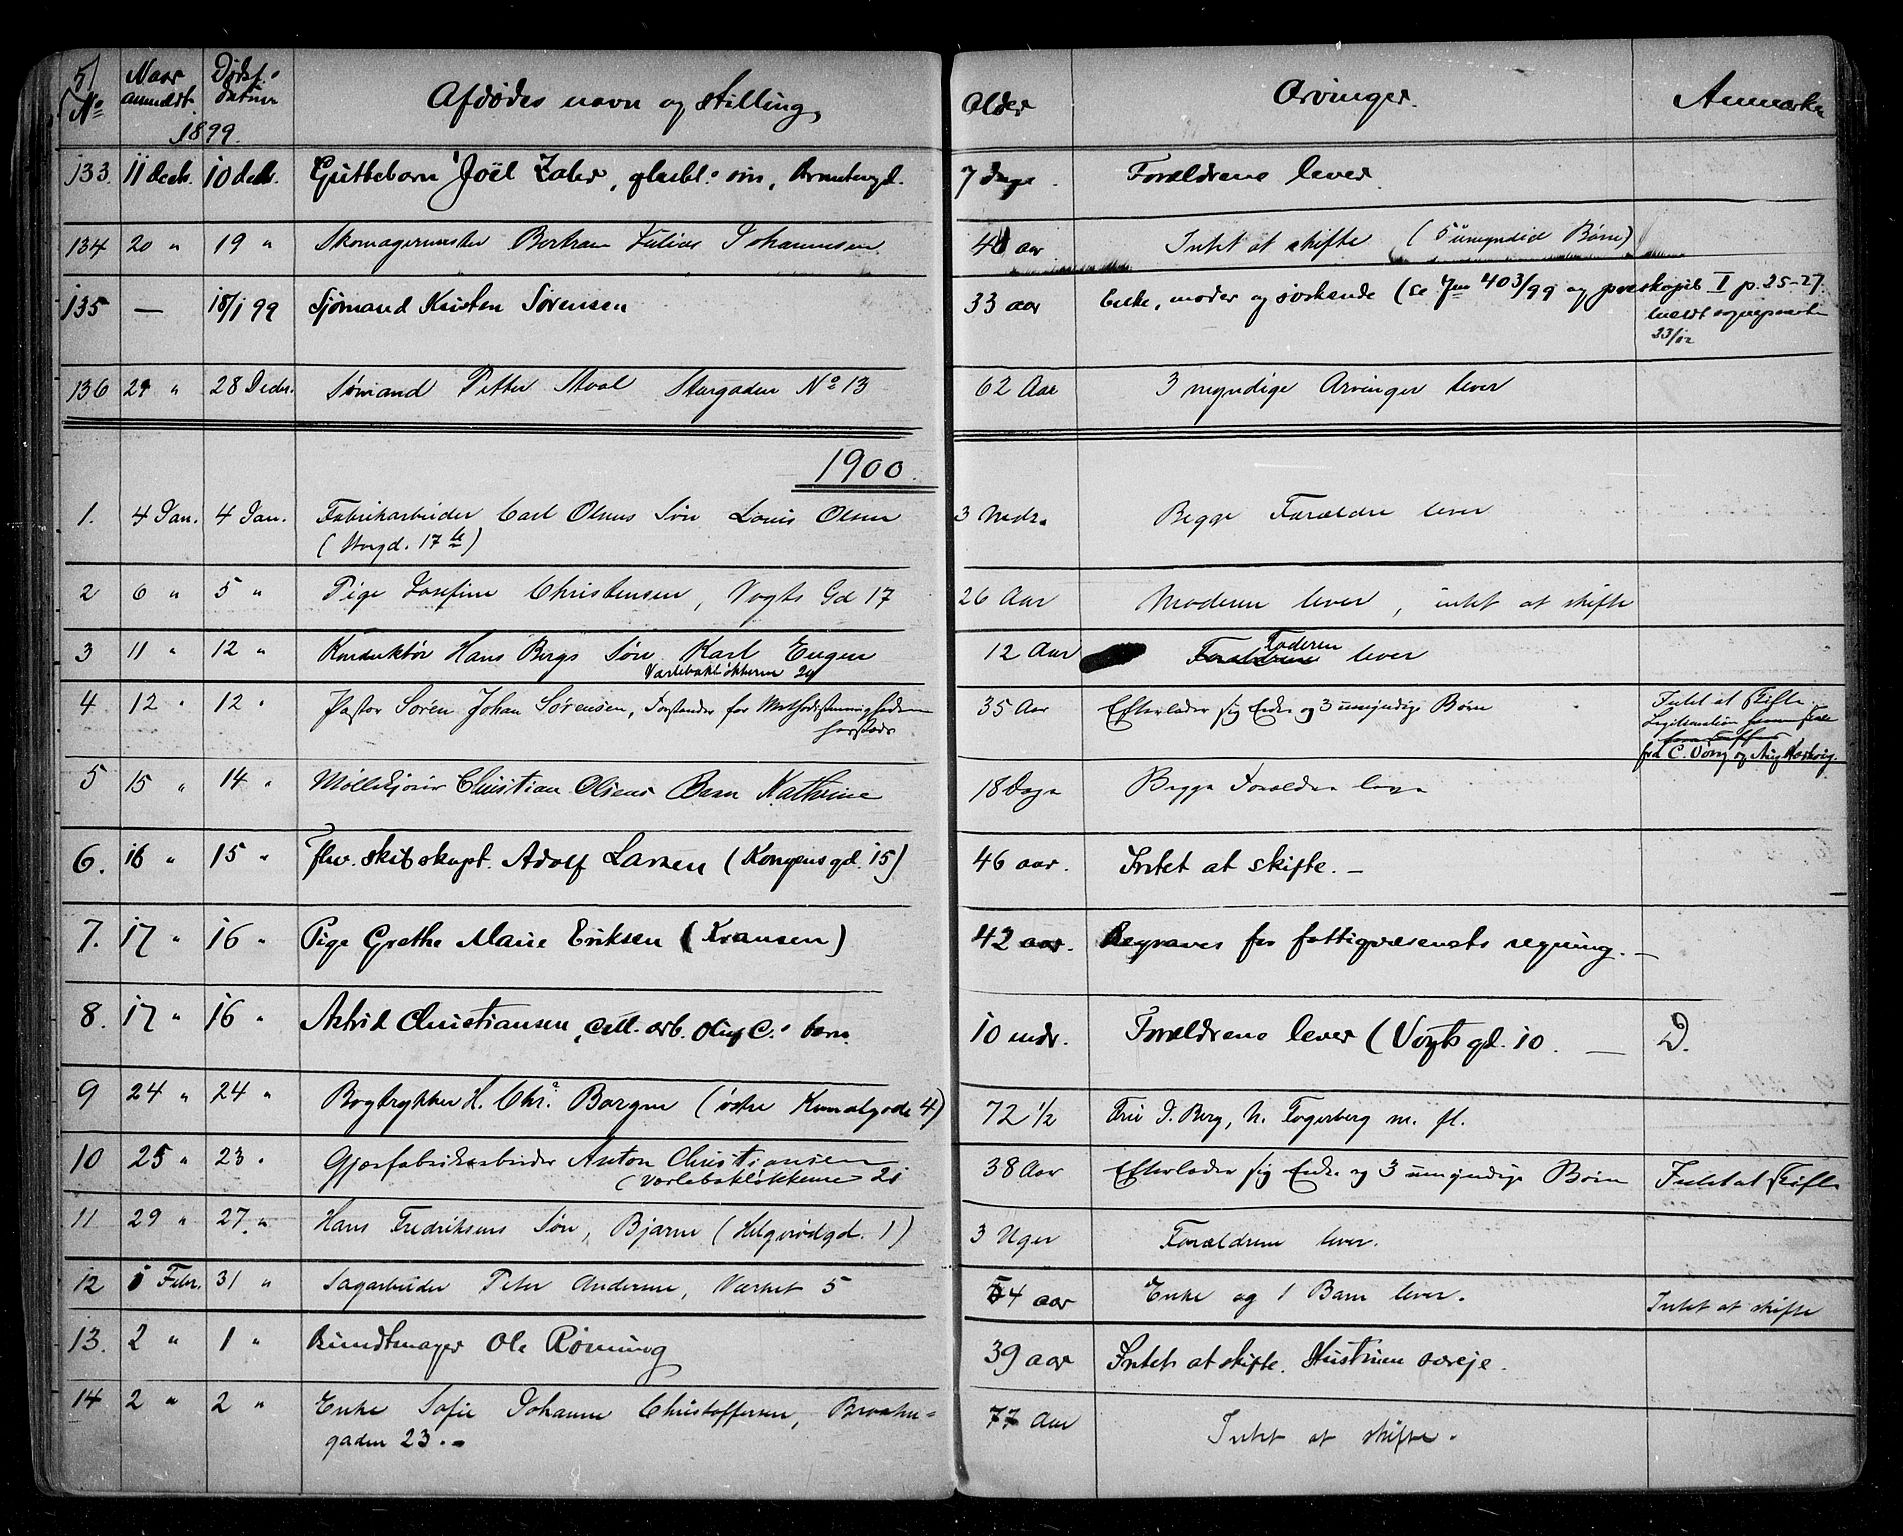 5/
No Naar anmeldt Dødsdatum Afdødes navn og stilling, Alder Arvinger. Anmærkn
1899.
133. 11 decb. 10 decb. Guttebarn Joël Zaler, 7 dage. Forældrene lever.
134 20 " 19 " Skomagermester Julius Johannesen 41 aar Intet at skifte (5 umyndig Børn)
135 — 18/1 99 Sjømand Kristen Sørensen 33 aar Enke, moder og søskende (se Jm 403/99 og pveskopib I p. 25-27.
23/12
136 29 " 28 Decbr. Sømand Petter Moal Storgaden No 13 62 Aar 3 myndige Arvinger lever
1900.
1. 4 Jan. 4 Jan. Fabrikarbeider Carl Olsens Søn Louis Olsen 3 Mdr. Begge Forældre lever
(Storgd. 17 b)
2 6 " 5 " Pige Josefine Christensen, Vogts Gd 17 26 Aar Moderen lever, intet at skifte
3 11 " 12 " Konduktør Hans Bergs Søn Karl Eugen 12 Aar Forældrene Faderen lever
Varlebakløkkerne 24
4 12 " 12 " Pastor Søren Johan Sørensen, Forstander for Methodistmenigheden 35 Aar Efterlader sig Enke og 3 umyndige Børn Intet at Skifte
hersteds Legitimation
fra C. Vong og Aug Hartvig.
5 15 " 14 " Møllekjører Christian Olsens Barn Kathrine 18 Dage Begge Forældre leve
6. 16 " 15 " fhv. skibskapt. Adolf Larsen (Kongensgd. 15) 46 aar. Intet at skifte. —
7. 17 " 16 " Pige Grethe Marie Eriksen (Kransen) 42 aar. Begraves for fattigvæsenets regning. —
8. 17 " 16 " Astrid Christiansen, cell. arb. Oluf C.s barn. 10 mdr. Forældrene lever (Vogts gd. 10. — D.
9 24 " 24 " Bogtrykker H. Chr. Borgen (østre Kanalgade 4) 72 1/2 Fru J. Berg, N. Fogerberg m. fl.
10 25 " 23 " Gjærfabrikarbeider Anton Christiansen 38 Aar Efterlader sig Enke og 3 umyndige Børn Intet at Skifte
(Varlebakløkkerne 21
11 29 " 27. " Hans Fredriksens Søn, Bjarne (Helgerødgd. 1) 3 Uger Forældrene lever.
12 1 Febr. 31 " Sagarbeider Peter Andersen, Værket 5 54 aar Enke og 1 Barn lever. Intet at skifte
13. 2 " 1 " Bundtmager Ole Rønning 39 aar Intet at skifte. Hustruen særeje.
14 2 " 2 " Enke Sofie Johanne Christoffersen, Brookn- 77 Aar Intet at skifte.
gaden 23. -